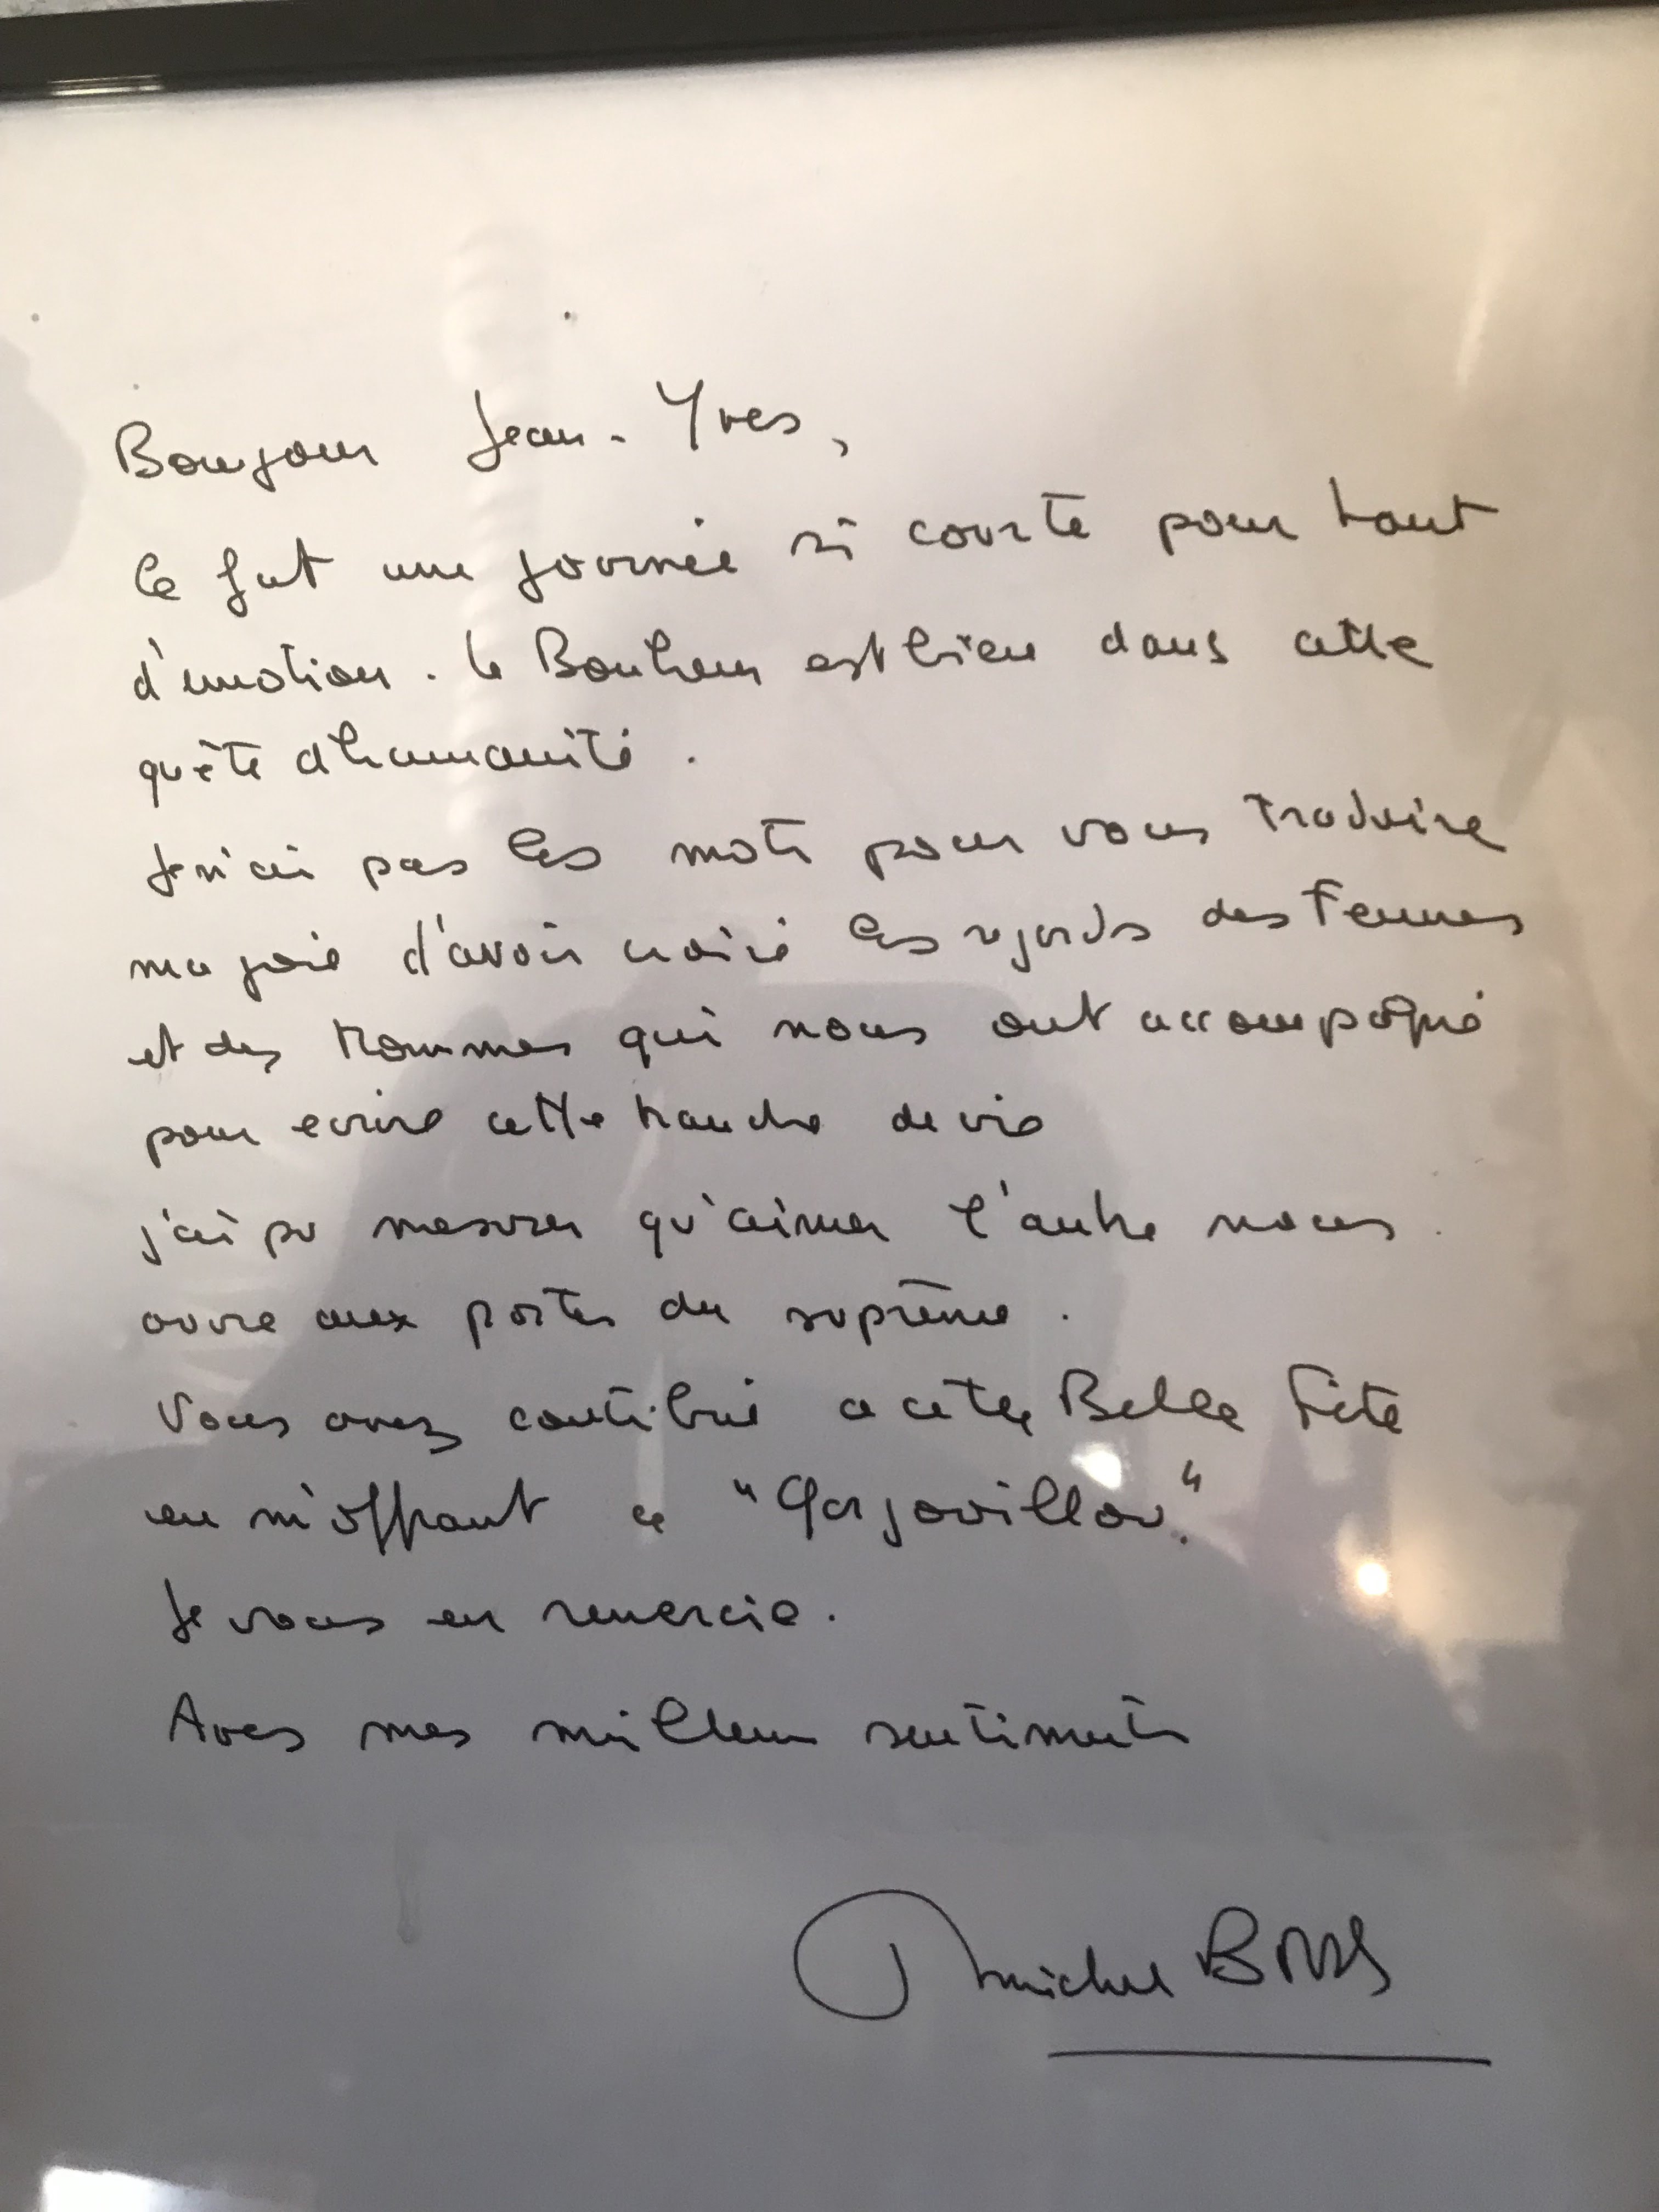 Bonjour Jean-Yves,
Ce fut une journée si courte pour tant
d'émotion. Le Bonheur est bien dans cette
quête d'humanité.
Je n'ai pas les mots pour vous traduire
ma joie d'avoir croisé les regards des Femmes
et des Hommes qui nous ont accompagné
pour ecrire cette tranche de vie
j'ai pu mesurer qu'aimer l'autre nous
ouvre aux portes du suprême.
Vous avez contribué a cette Belle Fête
en m'offrant ce "Gargouillou".
Je vous en remercie.
Avec mes meilleurs sentiments
Michel BRAS